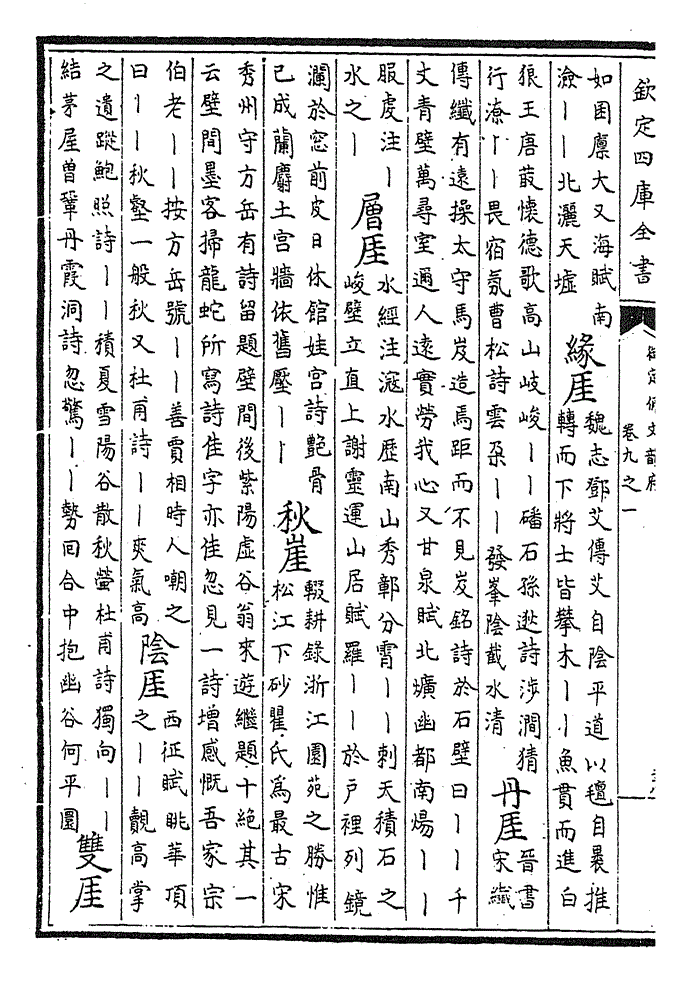 欽定四庫全書
御定佩文韻府
卷九之一
如囷廪大又海賦南
澰丨丨北灑天墟
緣厓
魏志鄧艾傳艾自陰平道以氊自裹推
轉而下將士皆攀木丨丨魚貫而進白
狼王唐菆懷德歌高山岐峻丨丨磻石孫逖詩涉澗猜
行潦丨丨畏宿氛曹松詩雲朶丨丨發峯陰截水清
丹厓
晉書
宋纖
傳纖有遠操太守馬岌造焉距而不見岌銘詩於石壁曰丨丨千
文青壁萬尋室邇人遠實勞我心又甘泉賦北爌幽都南煬丨丨
服虔注丨
水之丨
層厓
水經注滱水歷南山秀鄣分霄丨丨刺天積石之
峻壁立直上謝靈運山居賦羅丨丨於戶裡列鏡
瀾於窓前皮日休館娃宮詩艶骨
已成蘭麝土宮牆依舊壓丨丨
秋崖
輟耕錄浙江園苑之勝惟
松江下砂瞿氏爲最古宋
秀州守方岳有詩留題壁間後紫陽虛谷翁來遊繼題十絶其一
云壁間墨客掃龍蛇所寫詩佳字亦佳忽見一詩增感慨吾家宗
伯老丨丨按方岳號丨丨善賈相時人嘲之
曰丨丨秋壑一般秋又杜甫詩丨丨爽氣高
陰厓
西征賦眺華頂
之丨丨覿高掌
之遺蹤鮑照詩丨丨積夏雪陽谷散秋螢杜甫詩獨向丨丨
結茅屋曾鞏丹霞洞詩忽驚丨丨勢回合中抱幽谷何平圜
雙厓